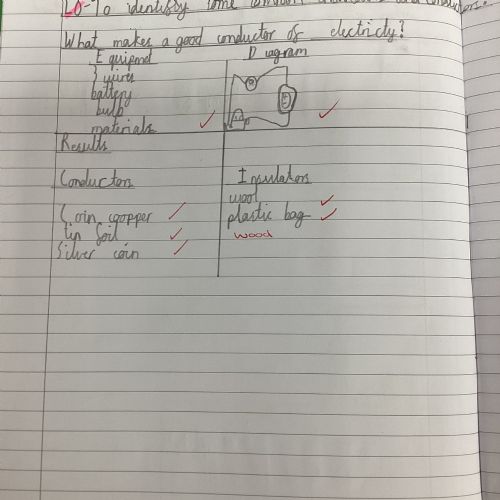 LO-To identify some common and conductors.
What makes a good conductor of electricty?
Equipmet
3 wires
battery
bulb
materials
Diagram
Results
Conductors
Coin copper
tin foil
Silver coin
Insulators
wool
plastic bag
wood